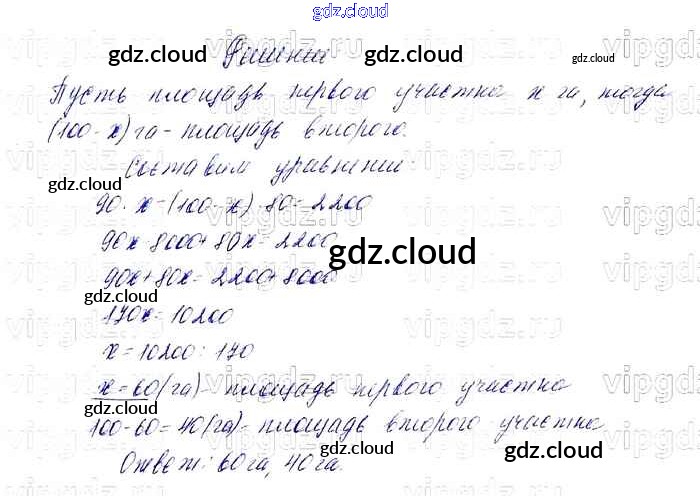 gdz.cloud
Решение
Пусть площадь первого участка x га, тогда
(100-x)га - площадь второго.
Составим уравнение:
90·x-(100-x)·80=2200
90x-8000+80x=2200
90x+80x=2200+8000
170x=10200
x=10200:170
x=60(га)- площадь первого участка
100-60=40(га)- площадь второго участка
Ответ: 60га, 40га.
gdz.cloud
gdz.cloud
gdz.cloud
gdz.cloud
gdz.cloud
gdz.cloud
gdz.cloud
gdz.cloud
gdz.cloud
gdz.cloud
vipgdz.ru